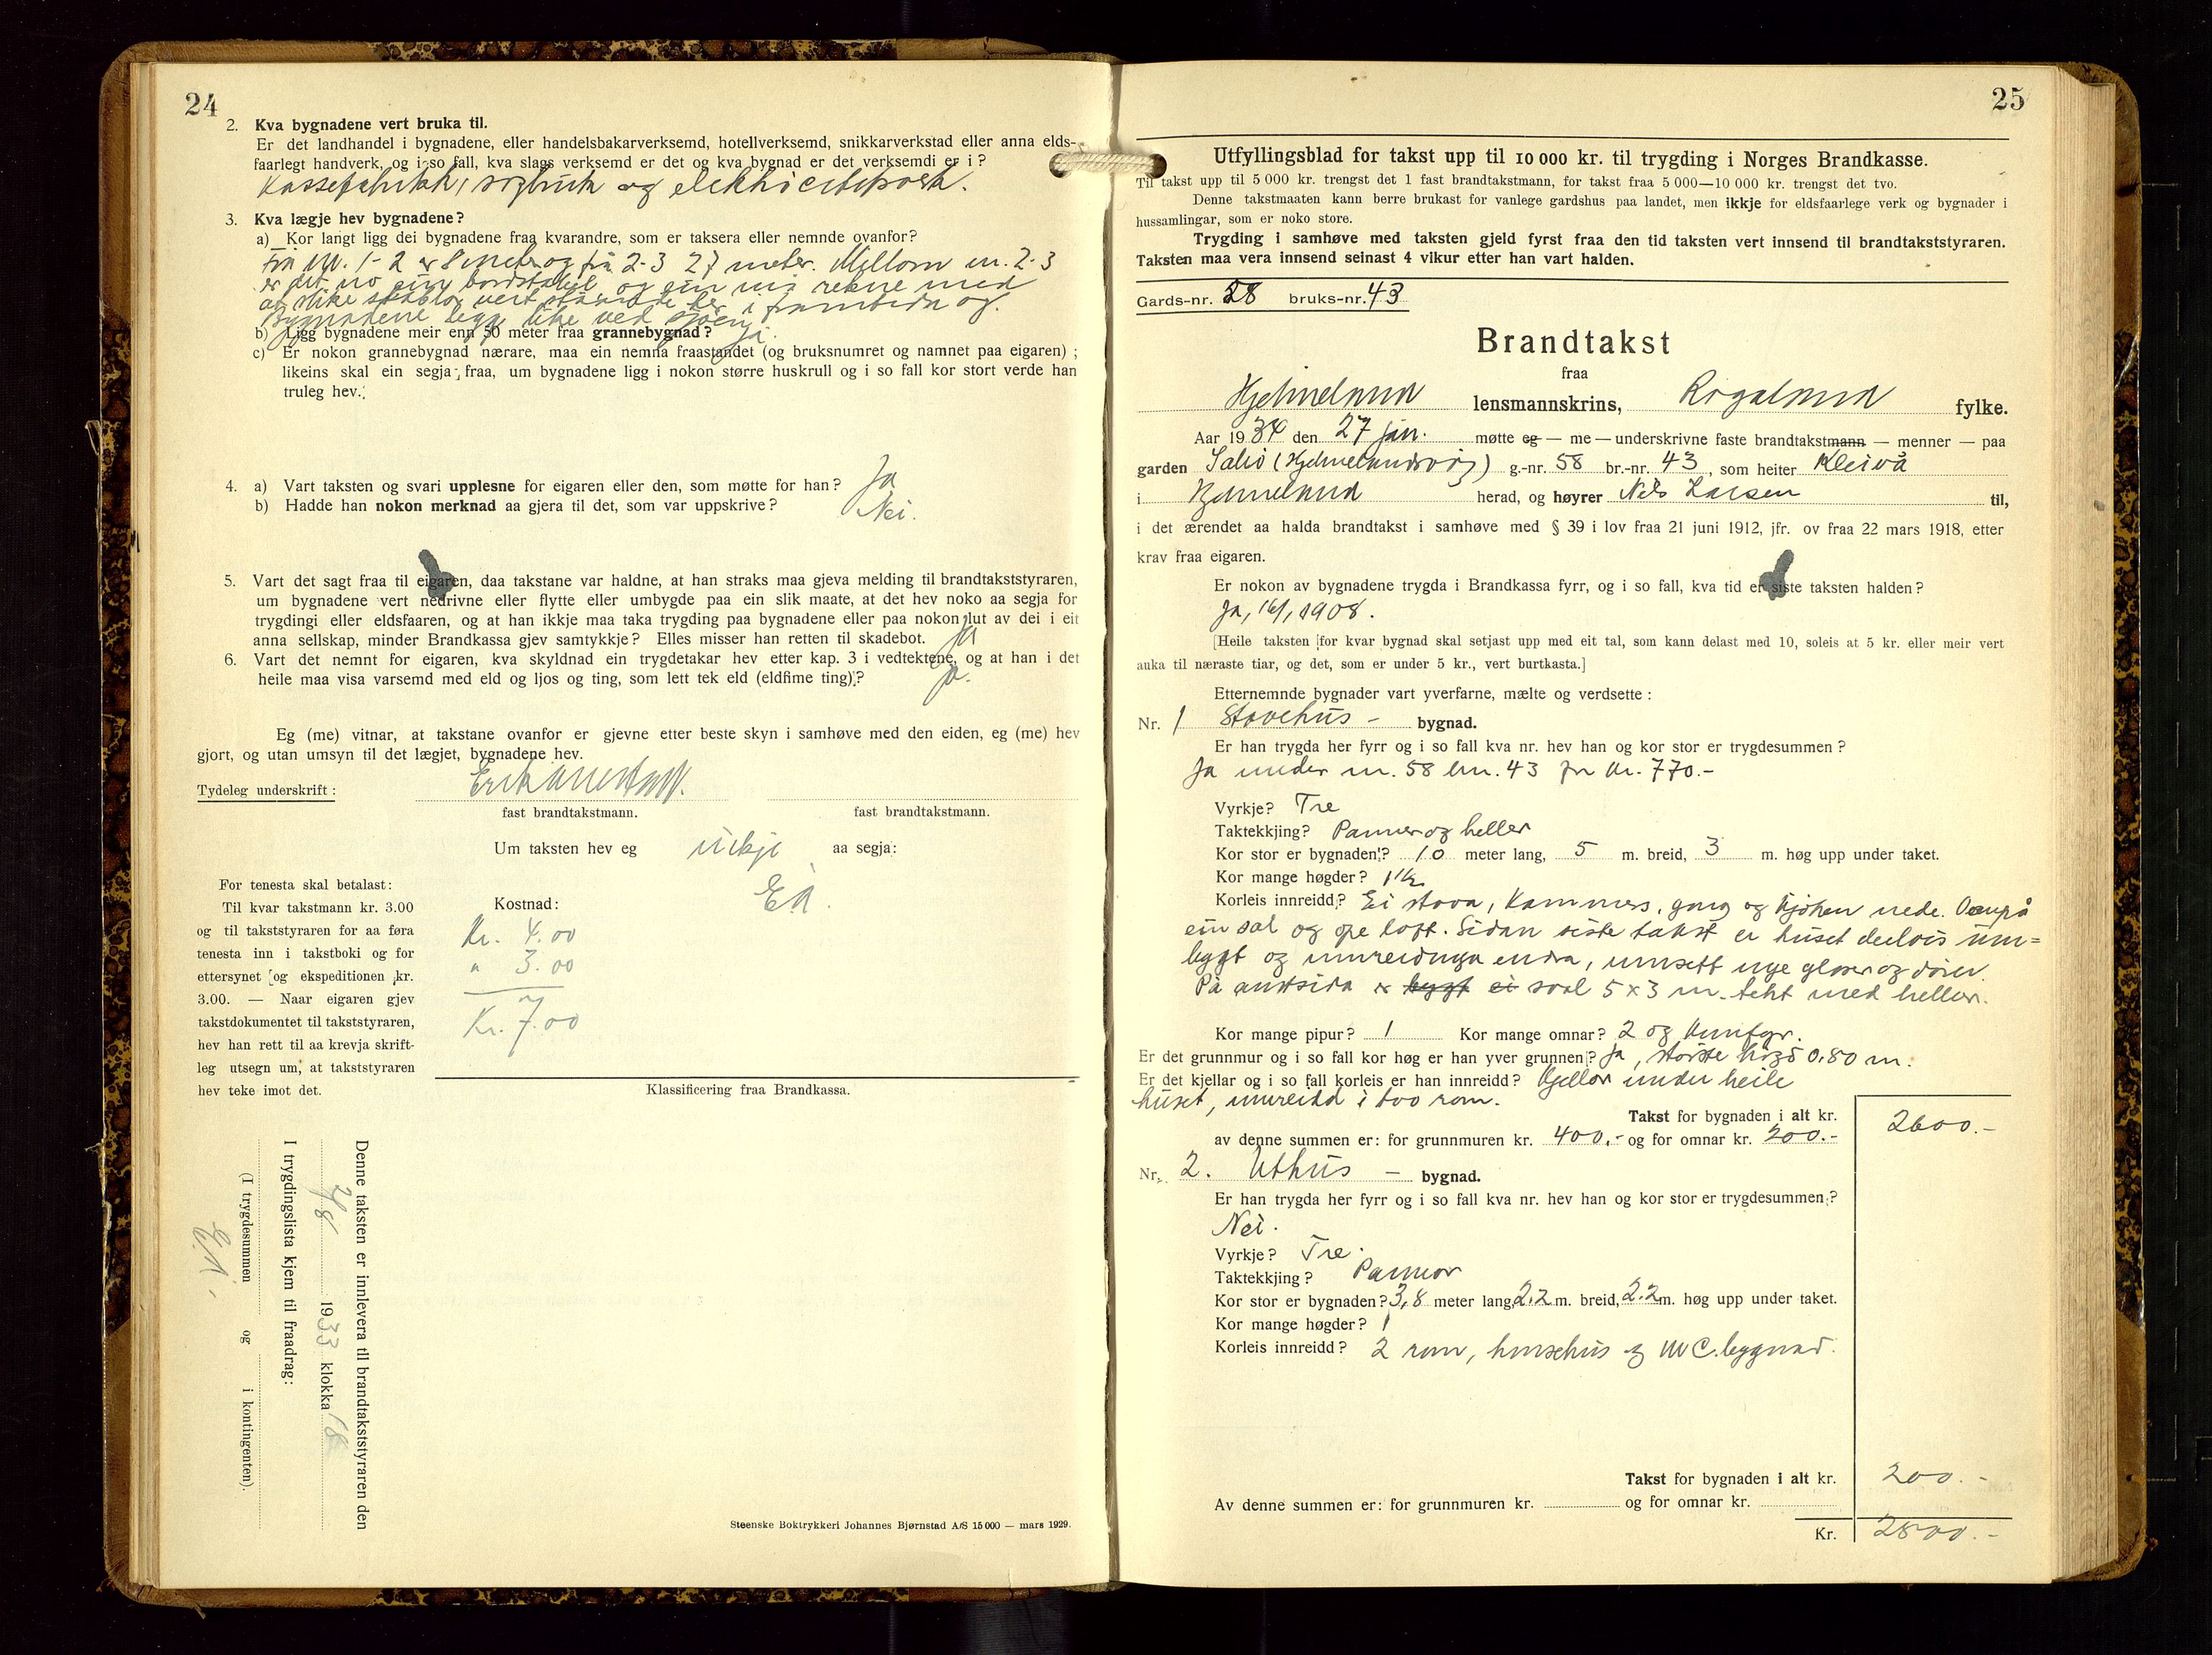 24
2. Kva bygnadene vert bruka til.
Er det landhandel i bygnadene, eller handelsbakarverksemd, hotellverksemd, snikkarverkstad eller anna elds-
faarlegt handverk, og i so fall, kva slags verksemd er det og kva bygnad er det verksemdi er i?
Kassefabrikk, sagbruk og elektricitetsverk.
3. Kva lægje hev bygnadene?
a) Kor langt ligg dei bygnadene fraa kvarandre, som er taksera eller nemnde ovanfor?
Frå nr. 1-2 er 8 meter og frå 2-3 27 meter. Millom nr. 2-3
er det no ein bordstabel og ein må rekne med
at slike stablar vert ståande her i framtida og.
Bygnadene ligg like ved sjøen.
b) Ligg bygnadene meir enn 50 meter fraa grannebygnad? Ja.
c) Er nokon grannebygnad nærare, maa ein nemna fraastandet (og bruksnumret og namnet paa eigaren);
likeins skal ein segja fraa, um bygnadene ligg i nokon større huskrull og i so fall kor stort verde han
truleg hev.
4. a) Vart taksten og svari upplesne for eigaren eller den, som møtte for han? Ja
b) Hadde han nokon merknad aa gjera til det, som var uppskrive? Nei.
5. Vart det sagt fraa til eigaren, daa takstane var haldne, at han straks maa gjeva melding til brandtakststyraren,
um bygnadene vert nedrivne eller flytte eller umbygde paa ein slik maate, at det hev noko aa segja for
trygdingi eller eldsfaaren, og at han ikkje maa taka trygding paa bygnadene eller paa nokon lut av dei i eit
anna sellskap, minder Brandkassa gjev samtykkje? Elles misser han retten til skadebot. Ja
6. Vart det nemnt for eigaren, kva skyldnad ein trygdetakar hev etter kap. 3 i vedtektene, og at han i det
heile maa visa varsemd med eld og ljos og ting, som lett tek eld (eldfime ting)? Ja.
Eg (me) vitnar, at takstane ovanfor er gjevne etter beste skyn i samhøve med den eiden, eg (me) hev
gjort, og utan umsyn til det lægjet, bygnadene hev.
Tydeleg underskrift:
fast brandtakstmann. fast brandtakstmann.
Um taksten hev eg ikkje aa segja:
E.A.
For tenesta skal betalast:
Til kvar takstmann kr. 3.00
og til takststyraren for aa føra
tenesta inn i takstboki og for
ettersynet og ekspeditionen kr.
3.00. — Naar eigaren gjev
takstdokumentet til takststyraren,
hev han rett til aa krevja skrift-
leg utsegn um, at takststyraren
hev teke imot det.
Kostnad:
Kr. 4.00
" 3.00
Kr. 7.00
Klassificering fraa Brandkassa.
Denne taksten er innlevera til brandtakststyraren den
2/8 1933 klokka 18
I trygdingslista kjem til fraadrag:
(I trygdesummen og i kontingenten).
E.A.
Steenske Boktrykkeri Johannes Bjørnstad A/S 15 000 — mars 1929.
25
Utfyllingsblad for takst upp til 10 000 kr. til trygding i Norges Brandkasse.
Til takst upp til 5 000 kr. trengst det 1 fast brandtakstmann, for takst fraa 5 000—10 000 kr. trengst det tvo.
Denne takstmaaten kann berre brukast for vanlege gardshus paa landet, men ikkje for eldsfaarlege verk og bygnader i
hussamlingar, som er noko store.
Trygding i samhøve med taksten gjeld fyrst fraa den tid taksten vert innsend til brandtakststyraren.
Taksten maa vera innsend seinast 4 vikur etter han vart halden.
Gards-nr. 58 bruks-nr. 43
Brandtakst
fraa
Hjelmeland lensmannskrins, Rogaland fylke.
Aar 1934 den 27 jan. møtte eg — me — underskrivne faste brandtakstmann — menner — paa
garden (Hjelmelandsvåg) g.-nr. 58 br.-nr. 43, som heiter Kleivå
i Hjelmeland herad, og høyrer Nels Larsen til,
i det ærendet aa halda brandtakst i samhøve med § 39 i lov fraa 21 juni 1912, jfr. ov fraa 22 mars 1918, etter
krav fraa eigaren.
Er nokon av bygnadene trygda i Brandkassa fyrr, og i so fall, kva tid er siste taksten halden?
Ja, 16/1 1908.
[Heile taksten for kvar bygnad skal setjast upp med eit tal, som kann delast med 10, soleis at 5 kr. eller meir vert
auka til næraste tiar, og det, som er under 5 kr., vert burtkasta.]
Etternemnde bygnader vart yverfarne, mælte og verdsette:
Nr. 1 Stovehus - bygnad.
Er han trygda her fyrr og i so fall kva nr. hev han og kor stor er trygdesummen?
Ja under nr. 58 bn. 43 for kr. 770.-
Vyrkje? Tre
Taktekkjing? Panner og heller
Kor stor er bygnaden? 10 meter lang, 5 m. breid, 3 m. høg upp under taket.
Kor mange høgder? 1½
Korleis innreidd? Ei stova, kammers, gang og kjøken nede. Ovanpå
ein sal og ope loft. Sidan siste takst er huset delvis um=
bygt og innreidnga endra, innsett nye glaser og dører.
På austsida er bygt ei sval 5 x 3 m. tekt med heller.
Kor mange pipur? 1 Kor mange omnar? 2 og komfyr.
Er det grunnmur og i so fall kor høg er han yver grunnen? Ja, største høgd 0.80 m.
Er det kjellar og i so fall korleis er han innreidd? Kjellar under heile
huset, innreidd i too rom.
Takst for bygnaden i alt kr. 2600.-
av denne summen er: for grunnmuren kr. 400,- og for omnar kr. 200.-
Nr. 2. Uthus - bygnad.
Er han trygda her fyrr og i so fall kva nr. hev han og kor stor er trygdesummen?
Nei.
Vyrkje? Tre.
Taktekkjing? Pannor
Kor stor er bygnaden? 3,8 meter lang, 2.2 m. breid, 2.2 m. høg upp under taket.
Kor mange høgder? 1
Korleis innreidd? 2 rom, hønsehus og W C. bygnad.
Takst for bygnaden i alt kr. 200.-
Av denne summen er: for grunnmuren kr. og for omnar kr.
Kr. 2800.-